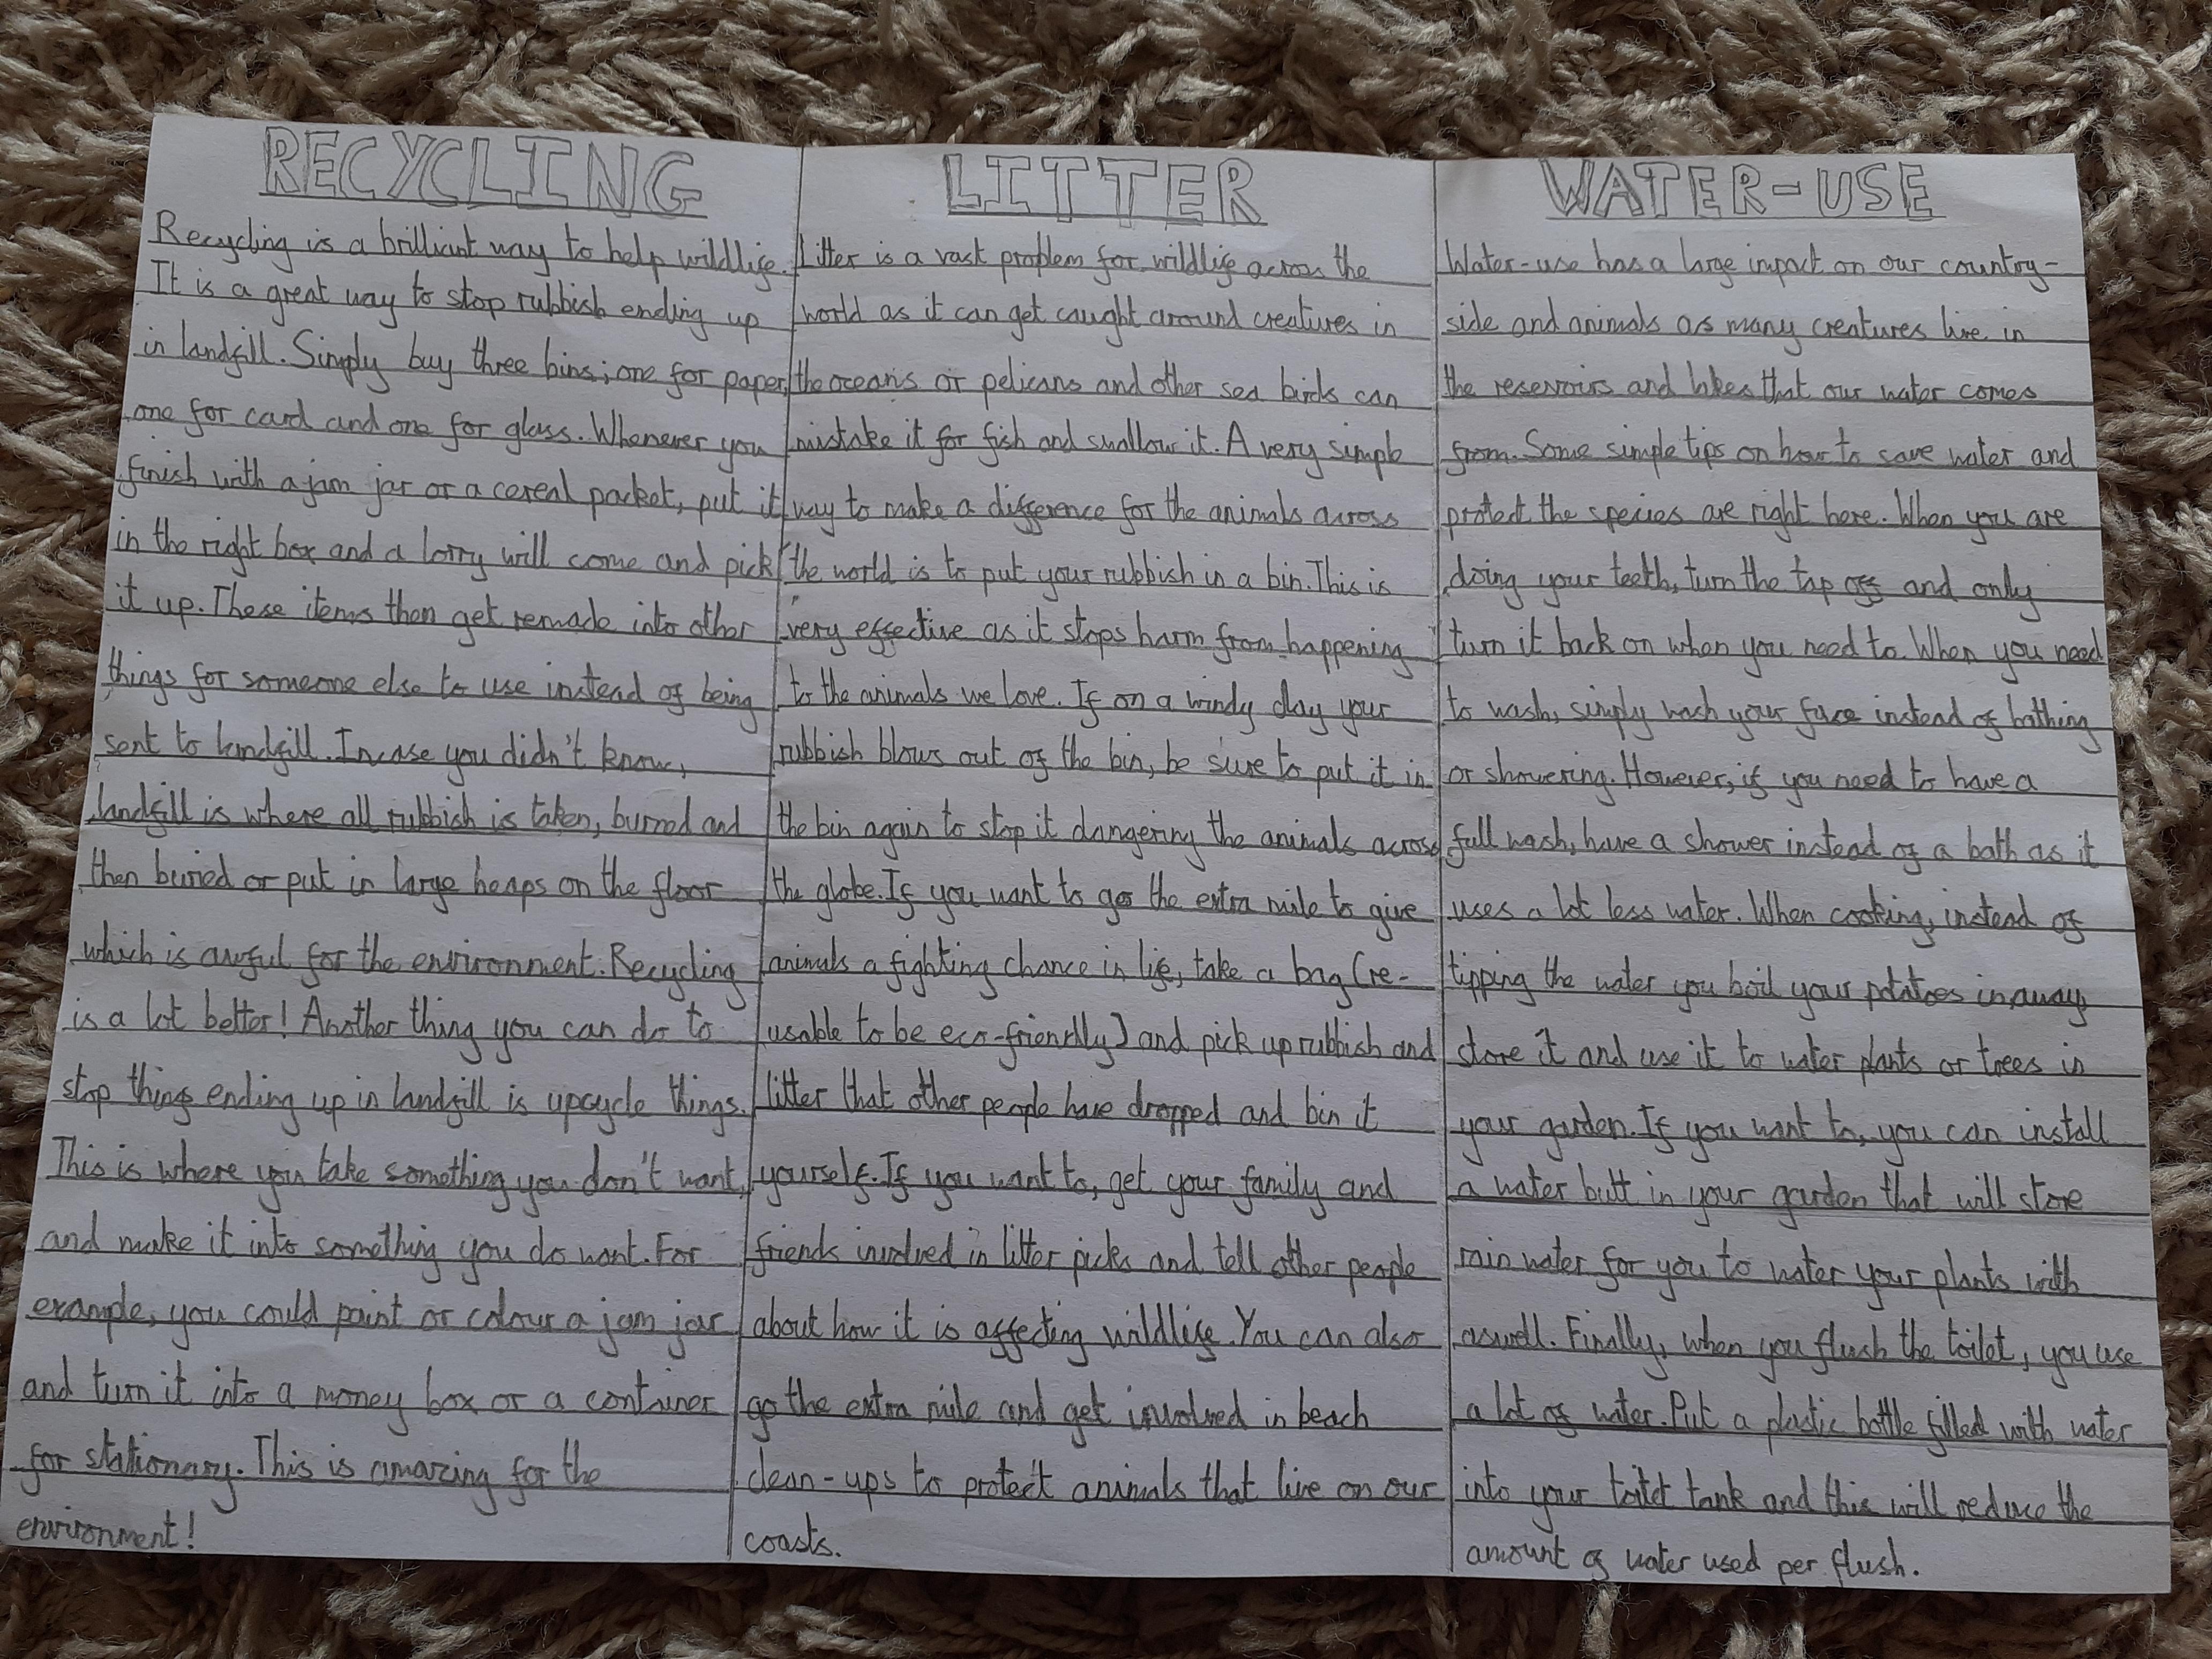 RECYCLING
Recycling is a brilliant way to help wildlife.
It is a great way to stop rubbish ending up
in landfill. Simply buy three bins; one for paper,
one for card and one for glass. Whenever you
finish with a jam jar or a cereal packet, put it
in the right box and a lorry will come and pick
it up. These items then get remade into other
things for someone else to use instead of being
sent to landfill. Incase you didn't know,
landfill is where all rubbish is taken, burned and
then buried or put in large heaps on the floor
which is awful for the environment. Recycling
is a lot better! Another thing you can do to
stop things ending up in landfill is upcycle things.
This is where you take something you don't want,
and make it into something you do want. For
example, you could paint or colour a jam jar
and turn it into a money box or a container
for stationary. This is amazing for the
environment!
LITTER
Litter is a vast problem for wildlife across the
world as it can get caught around creatures in
the oceans or pelicans and other sea birds can
mistake it for fish and swallow it. A very simple
way to make a difference for the animals across
the world is to put your rubbish in a bin. This is
very effective as it stops harm from happening
to the animals we love. If on a windy day your
rubbish blows out of the bin, be sure to put it in
the bin again to stop it dangering the animals across
the globe. If you want to go the extra mile to give
animals a fighting chance in life, take a bag (re-
usable to be eco-friendly) and pick up rubbish and
litter that other people have dropped and bin it
yourself. If you want to, get your family and
friends involved in litter picks and tell other people
about how it is affecting wildlife. You can also
go the extra mile and get involved in beach
clean-ups to protect animals that live on our
coasts.
WATER-USE
Water-use has a large impact on our country-
side and animals as many creatures live in
the reservoirs and lakes that our water comes
from. Some simple tips on how to save water and
protect the species are right here. When you are
doing your teeth, turn the tap off and only
turn it back on when you need to. When you need
to wash, simply wash your face instead of bathing
or showering. However, if you need to have a
full wash, have a shower instead of a bath as it
uses a lot less water. When cooking, instead of
tipping the water you boil your potatoes in, away
store it and use it to water plants or trees in
your garden. If you want to, you can install
a water butt in your garden that will store
rain water for you to water your plants with
aswell. Finally, when you flush the toilet, you use
a lot of water. Put a plastic bottle filled with water
into your toilet tank and this will reduce the
amount of water used per flush.